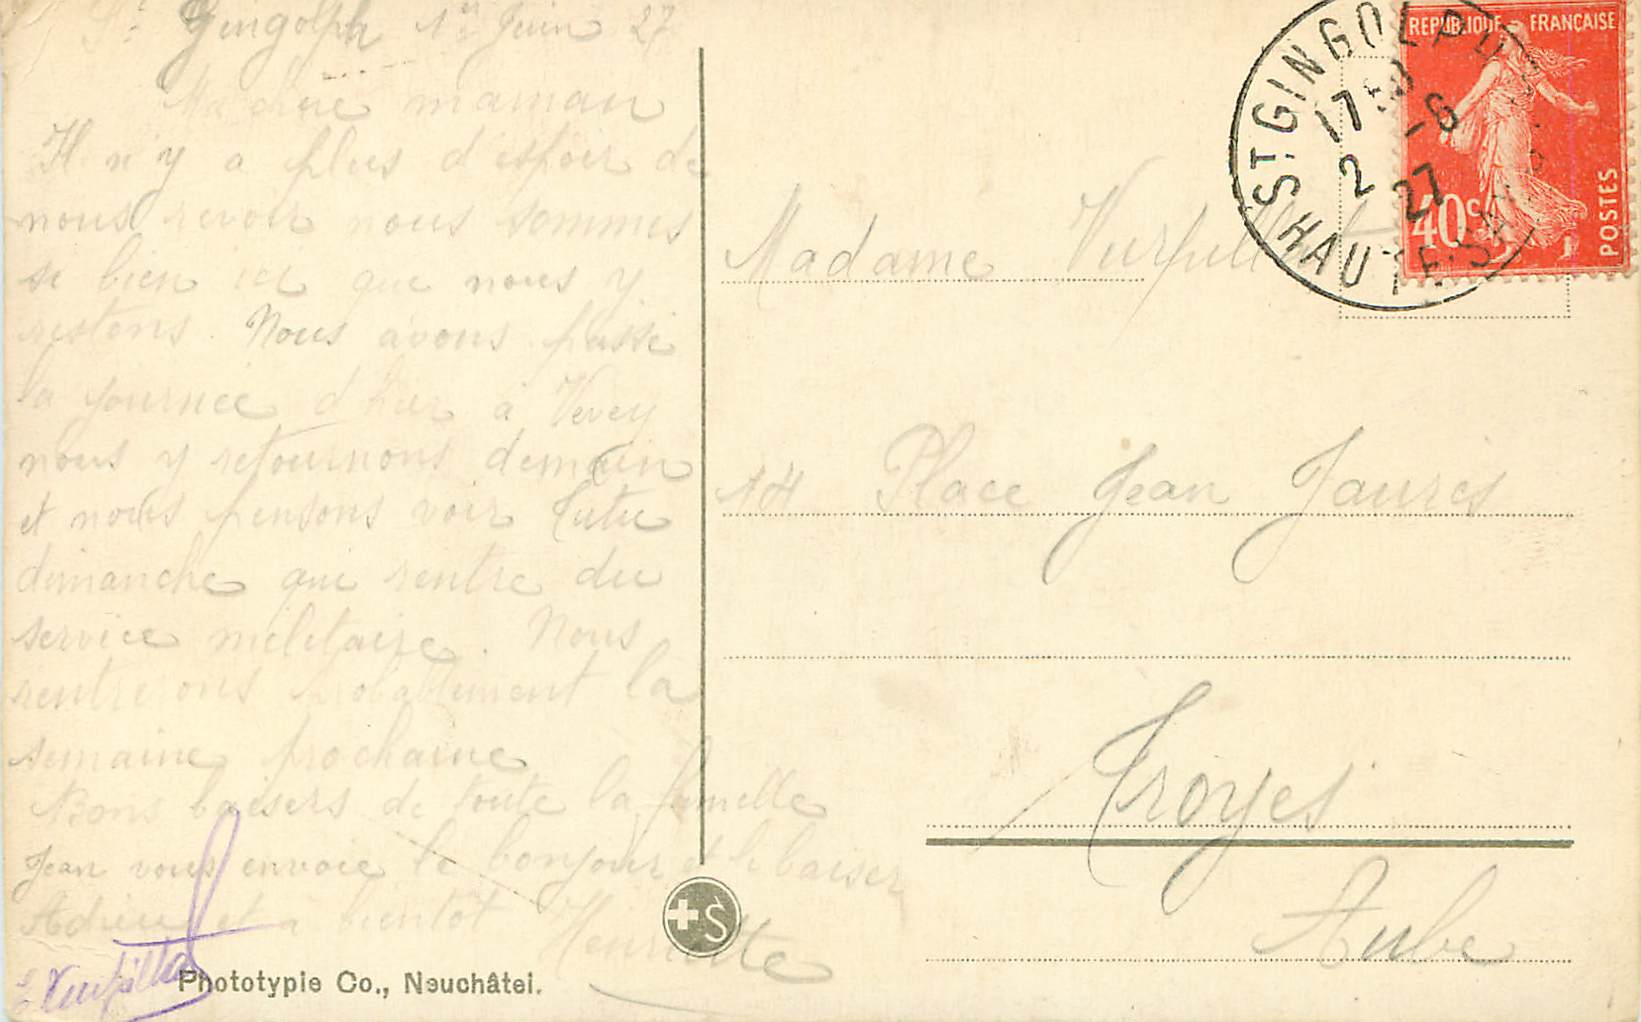 St Gingolph 1er Juin 27
Ma chère maman
Il n'y a plus d'espoir de
nous revoir nous sommes
si bien ici que nous y
restons. Nous avons passé
la journée d'hier à Vevey
nous y retournons demain
et nous pensons voir Tutu
dimanche qui rentre du
service militaire. Nous
rentrerons probablement la
semaine prochaine
Bons baisers de toute la famille
Jean vous envoie le bonjour et le baiser
Adieu et a bientôt Henriette
Phototypie Co., Neuchâtel.
+S
ST GINGOLPH
17 30
2 -6
27
HAUTE-SAVOIE
REPUBLIQUE FRANÇAISE
40c
POSTES
Madame Vurpillat
14 Place Jean Jaurès
Troyes
Aube